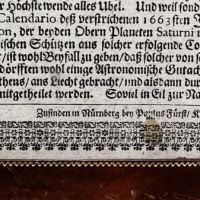 r Höchste wende alles Ubel. Und weil sonde
Calendario deß verstrichenen 1663sten J
on, der beyden Obern Planeten Saturni
ischen Schützen aus solcher erfolgende Co
/ ist wohl Beyfall zu geben/ daß solcher von se
dörfften wohl einige Astronomische Gutach
thens/ ans Liecht gebracht/ und als dann dur
mitgetheilet werden. Soviel in Eil zur Na
Zufinden in Nürnberg bey Paulus Fürst/ K